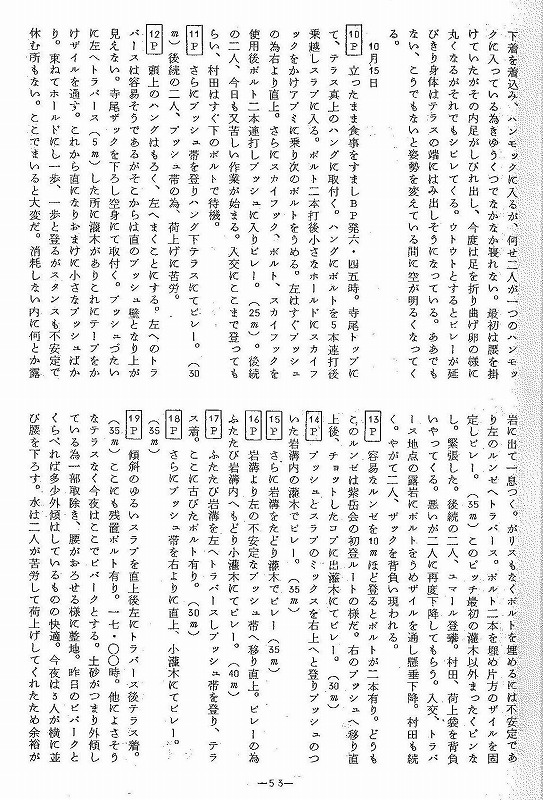 下着を着込み、ハンモックに入るが、何せ二人が一つのハンモッ
クに入っている為きゅうくつでなかなか寝れない。最初は腰を掛
けていたがその内足がしびれ出し、今度は足を折り曲げ卵の様に
丸くなるがそれでもシビレてくる。ウトウトとするとビレーが延
びきり身体はテラスの端にはみ出しそうになっている。ああでも
ない、こうでもないと姿勢を変えている間に空が明るくなってく
る。
10月15日
10P 立ったまま食事をすましBP発六・四五時。寺尾トップに
て、テラス真上のハングに取付く。ハングにボルトを5本連打後
乗越しスラブに入る。ボルト二本打後小さなホールドにスカイフ
ックをかけアブミに乗り次のボルトをうめる。左はすぐブッシュ
の為右より直上。さらにスカイフック、ボルト、スカイフックを
使用後ボルト二本連打しブッシュに入りビレー。(25m)。後続
の二人、今日も又苦しい作業が始まる。入交にここまで登っても
らい、村田はすぐ下のボルトで待機。
11P さらにブッシュ帯を登りハング下テラスにてビレー。(30
m)後続の二人、ブッシュ帯の為、荷上げに苦労。
12P 頭上のハングはもろく、左へまくことにする。左へのトラ
バースは容易そうであるがそこからは直のブッシュ壁となり上が
見えない。寺尾ザックを下ろし空身にて取付く。ブッシュづたい
に左へトラバース(5m)した所に潅木がありこれにテープをか
けザイルを通す。これから直になりおまけに小さなブッシュばか
り。束ねてホールドにし一歩、一歩と登るがスタンスも不安定で
休む所もない。ここでまいると大変だ。消耗しない内に何とか露
岩に出て一息つく。がリスもなくボルトを埋めるには不安定であ
り左のルンゼへトラバース。ボルト二本を埋め片方のザイルを固
定しビレー。(35m)このピッチ最初の潅木以外まったくピンな
し。緊張した。後続の二人、ユマール登攀。村田、荷上袋を背負
いやってくる。悪いが二人に再度下降してもらう。入交、トラバ
ース地点の露岩にボルトをうめザイルを通し懸垂下降。村田も続
く。やがて二人、ザックを背負い現われる。
13P 容易なルンゼを10mほど登るとボルトが二本有り。どうも
このルンゼは紫岳会の初登ルートの様だ。右のブッシュへ移り直
上後、チョットしたコブに出潅木にてビレー。(30m)
14P ブッシュとスラブのミックスを右上へと登りブッシュのつ
いた岩溝内の潅木でビレー。(35m)
15P さらに岩溝をたどり潅木でビレー(35m)
16P 岩溝より左の不安定なブッシュ帯へ移り直上。ビレーの為
ふたたび岩溝内へもどり小潅木にてビレー。(40m)
17P ふたたび岩溝を左へトラバースしブッシュ帯を登り、テラ
ス着。ここに古びたボルト有り。(30m)
18P さらにブッシュ帯を右よりに直上、小潅木にてビレー。
(35m)
19P 傾斜のゆるいスラブを直上後左にトラバース後テラス着。
(35m)ここにも残置ボルト有り。一七・〇〇時。他によさそう
なテラスなく今夜はここでビバークとする。土砂がつまり外傾し
ている為一部取除き、腰がおろせる様に整地。昨日のビバークと
くらべれば多少外傾はしているものの快適。今夜は3人が横に並
び腰を下ろす。水は二人が苦労して荷上げしてくれたため余裕が
—53—